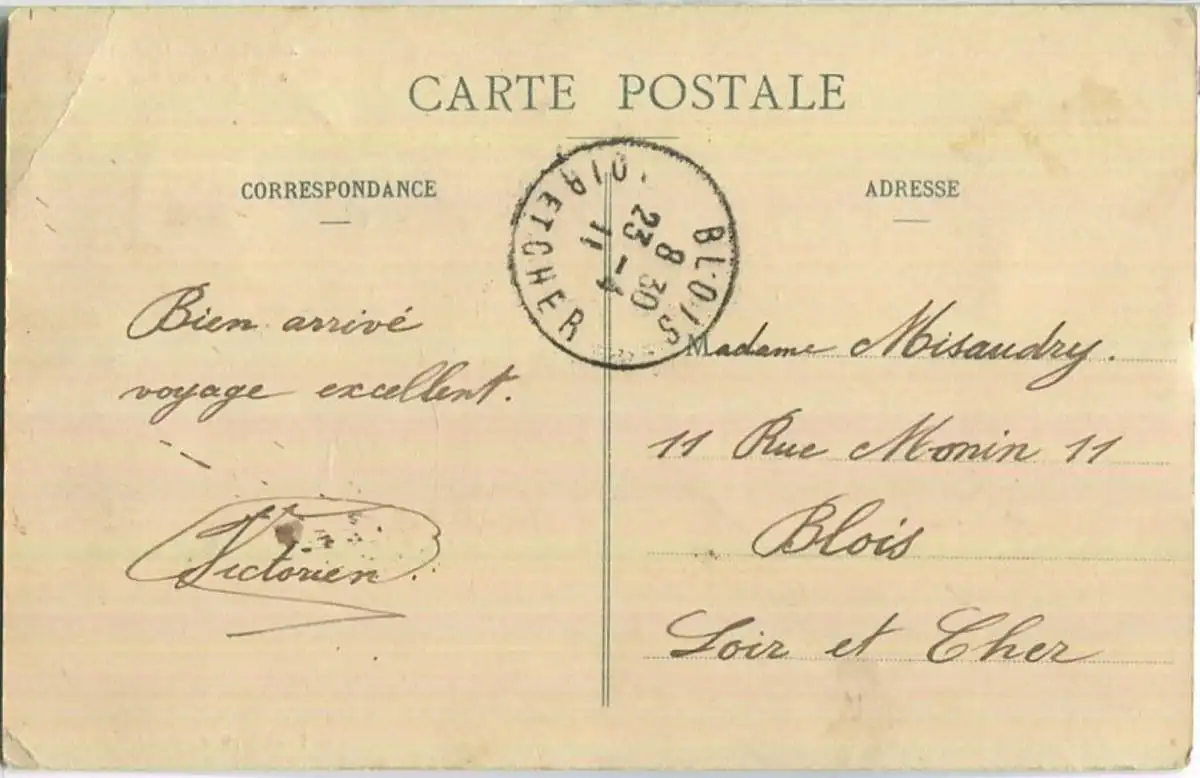 CARTE POSTALE
CORRESPONDANCE
ADRESSE
BLOIS
8 30
23 - 4
11
LOIR ET CHER
Bien arrivé
voyage excellent.
Victorien.
Madame Misaudry.
11 Rue Monin 11
Blois
Loir et Cher